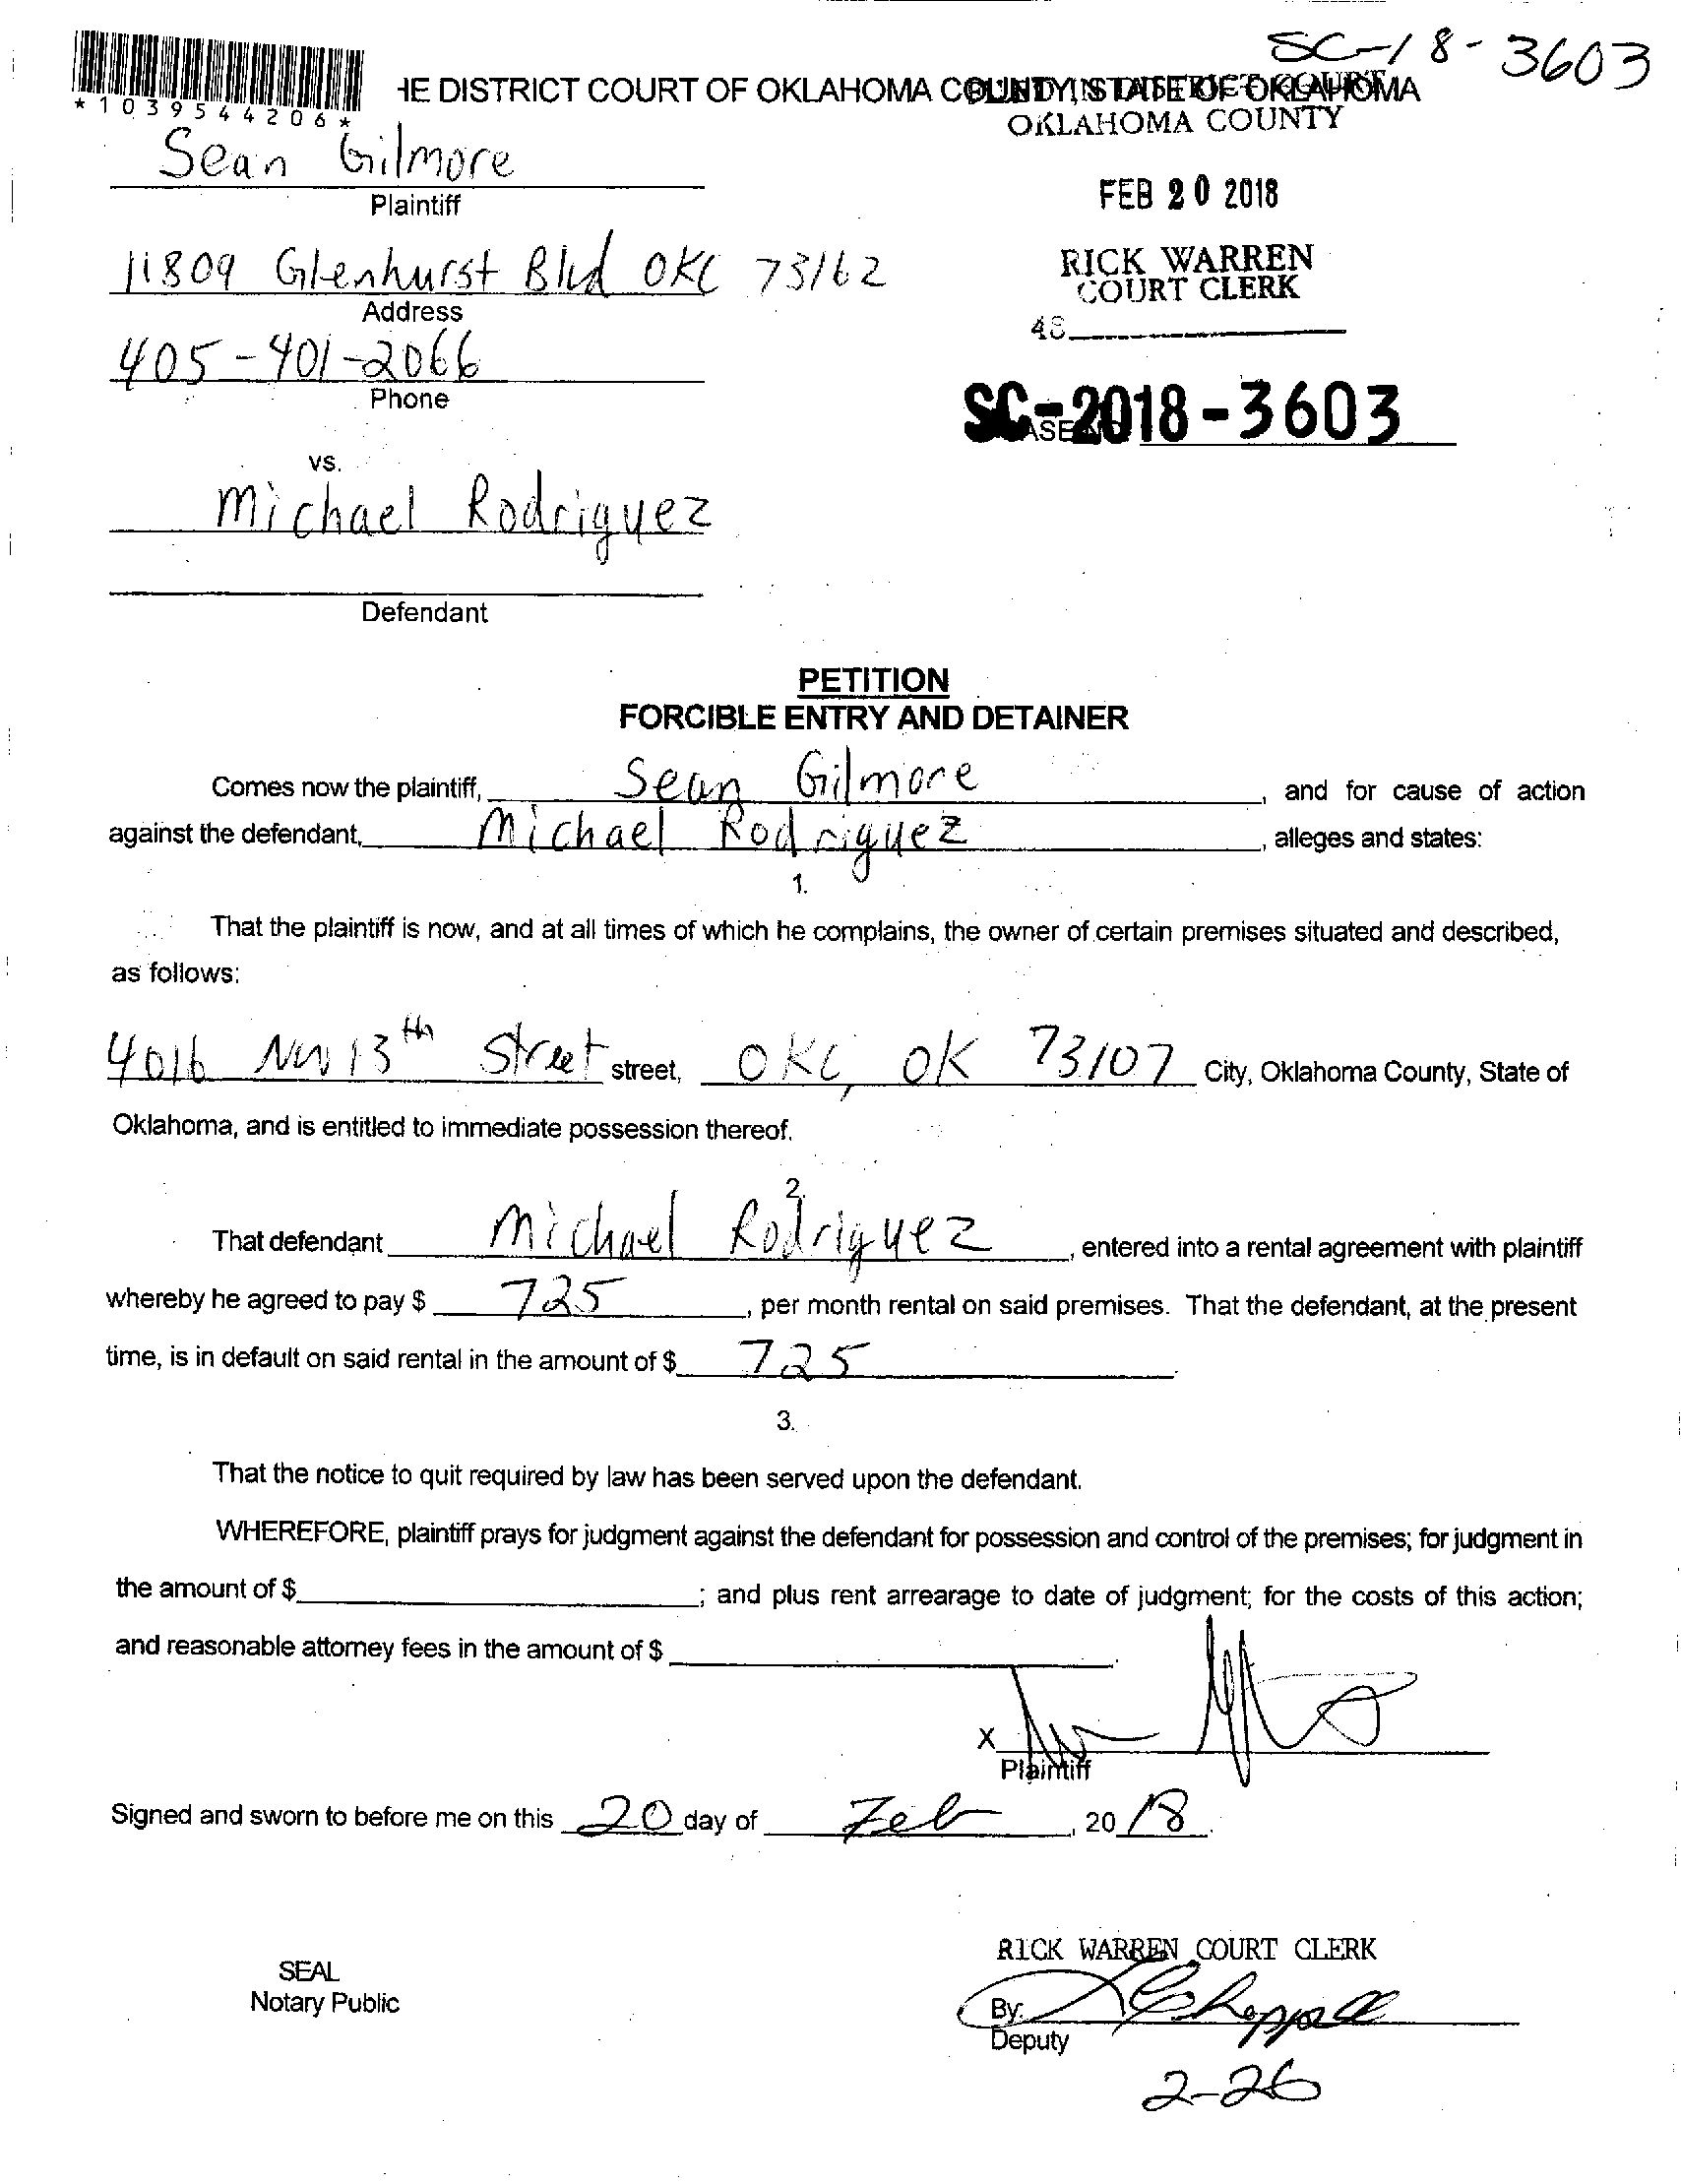 SC-18-3603
*1039544206*
HE DISTRICT COURT OF OKLAHOMA COUNTY, STATE OF OKLAHOMA
OKLAHOMA COUNTY
Sean Gilmore
Plaintiff
FEB 20 2018
11809 Glenhurst Blvd OKC 73162
Address
RICK WARREN
COURT CLERK
48
405-401-2066
Phone
SC-2018-3603
vs.
Michael Rodriguez
Defendant
PETITION
FORCIBLE ENTRY AND DETAINER
Comes now the plaintiff, Sean Gilmore, and for cause of action
against the defendant, Michael Rodriguez, alleges and states:
1.
That the plaintiff is now, and at all times of which he complains, the owner of certain premises situated and described,
as follows:
4016 NW 13th Street street, OKC, OK 73107 City, Oklahoma County, State of
Oklahoma, and is entitled to immediate possession thereof.
2.
That defendant Michael Rodriguez, entered into a rental agreement with plaintiff
whereby he agreed to pay $ 725, per month rental on said premises. That the defendant, at the present
time, is in default on said rental in the amount of $ 725
3.
That the notice to quit required by law has been served upon the defendant.
WHEREFORE, plaintiff prays for judgment against the defendant for possession and control of the premises; for judgment in
the amount of $ ; and plus rent arrearage to date of judgment; for the costs of this action;
and reasonable attorney fees in the amount of $
X
Plaintiff
Signed and sworn to before me on this 20 day of Feb, 20 18.
RICK WARREN COURT CLERK
SEAL
Notary Public
By:
Deputy
2-26